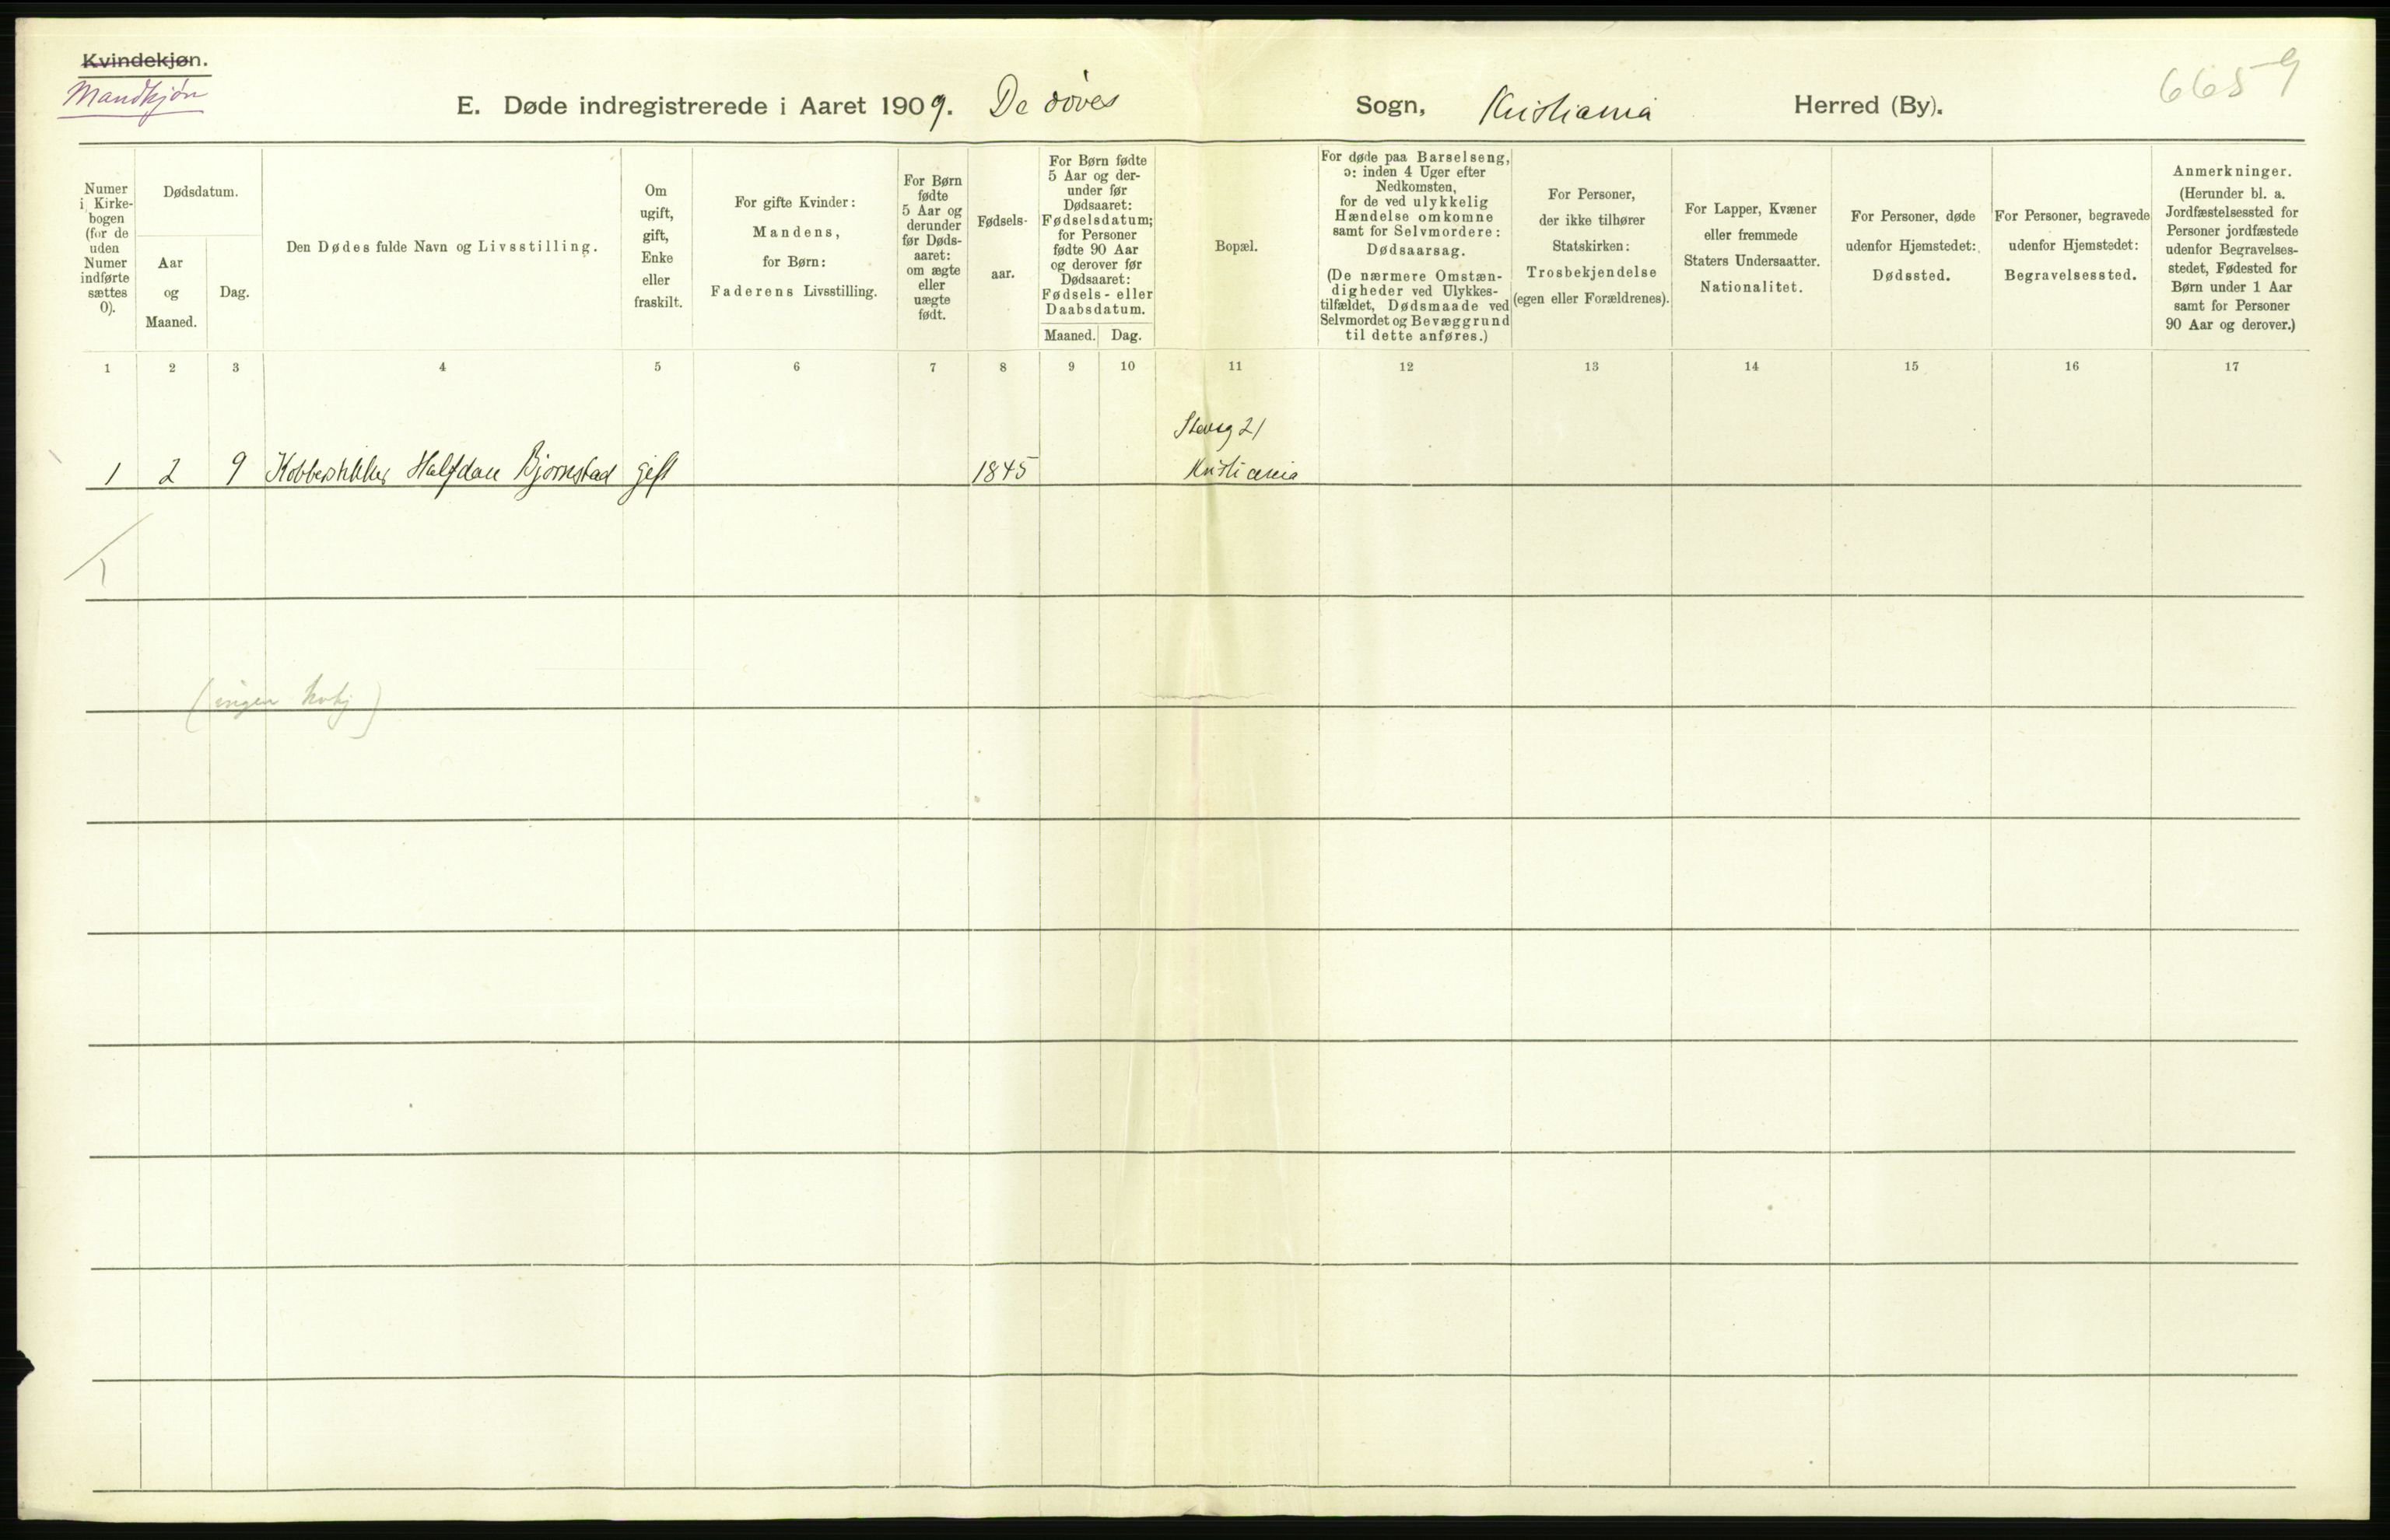 Kvindekjøn.
Mandkjøn
6659
E. Døde indregistrerede i Aaret 1909. De døves Sogn, Kristiania Herred (By).
Numer i Kirke-bogen (for de uden Numer indførte sættes 0).
Dødsdatum.
Aar og Maaned.
Dag.
Den Dødes fulde Navn og Livsstilling.
Om ugift, gift, Enke eller fraskilt.
For gifte Kvinder: Mandens, for Børn: Faderens Livsstilling.
For Børn fødte 5 Aar og derunder før Døds-aaret: om ægte eller uægte født.
Fødsels-aar.
For Børn fødte 5 Aar og der-under før Dødsaaret: Fødselsdatum; for Personer fødte 90 Aar og derover før Dødsaaret: Fødsels- eller Daabsdatum.
Maaned. Dag.
Bopæl.
For døde paa Barselseng, ɔ: inden 4 Uger efter Nedkomsten, for de ved ulykkelig Hændelse omkomne samt for Selvmordere: Dødsaarsag.
(De nærmere Omstæn-digheder ved Ulykkes-tilfældet, Dødsmaade ved Selvmordet og Bevæggrund til dette anføres.)
For Personer, der ikke tilhører Statskirken: Trosbekjendelse (egen eller Forældrenes).
For Lapper, Kvæner eller fremmede Staters Undersaatter. Nationalitet.
For Personer, døde udenfor Hjemstedet: Dødssted.
For Personer, begravede udenfor Hjemstedet: Begravelsessted.
Anmerkninger.
(Herunder bl. a. Jordfæstelsessted for Personer jordfæstede udenfor Begravelses-stedet, Fødested for Børn under 1 Aar samt for Personer 90 Aar og derover.)
1 2 3 4 5 6 7 8 9 10 11 12 13 14 15 16 17
21
1 2 9 Kobberstikker Halfdan Bjørnstad gift 1845 Kristiania
1
(ingen kvkj)